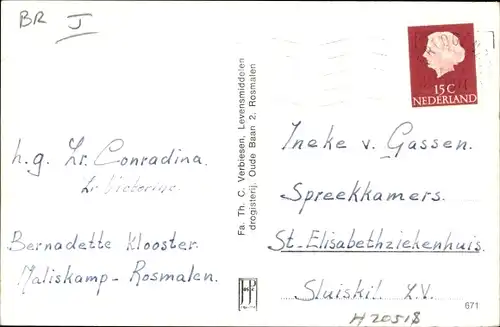 BR I
15 C
NEDERLAND
h.g. Zr. Conradina.
Zr Victorine.
Bernadette Klooster.
Maliskamp-Rosmalen.
Fa. Th. C. Verbiesen, Levensmiddelen
drogisterij, Oude Baan 2, Rosmalen
Ineke v. Gassen.
Spreekkamers.
St-Elisabethziekenhuis.
Sluiskil. Z.V.
671
H20518